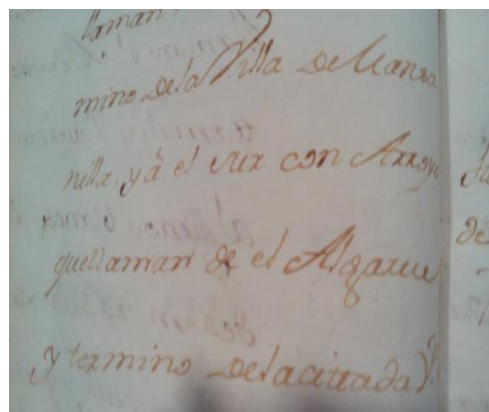 llaman
mino dela Villa de Manza
nilla, y â el sur con Arroyo
quellaman de el Algarue
y termino delacitada V.ª